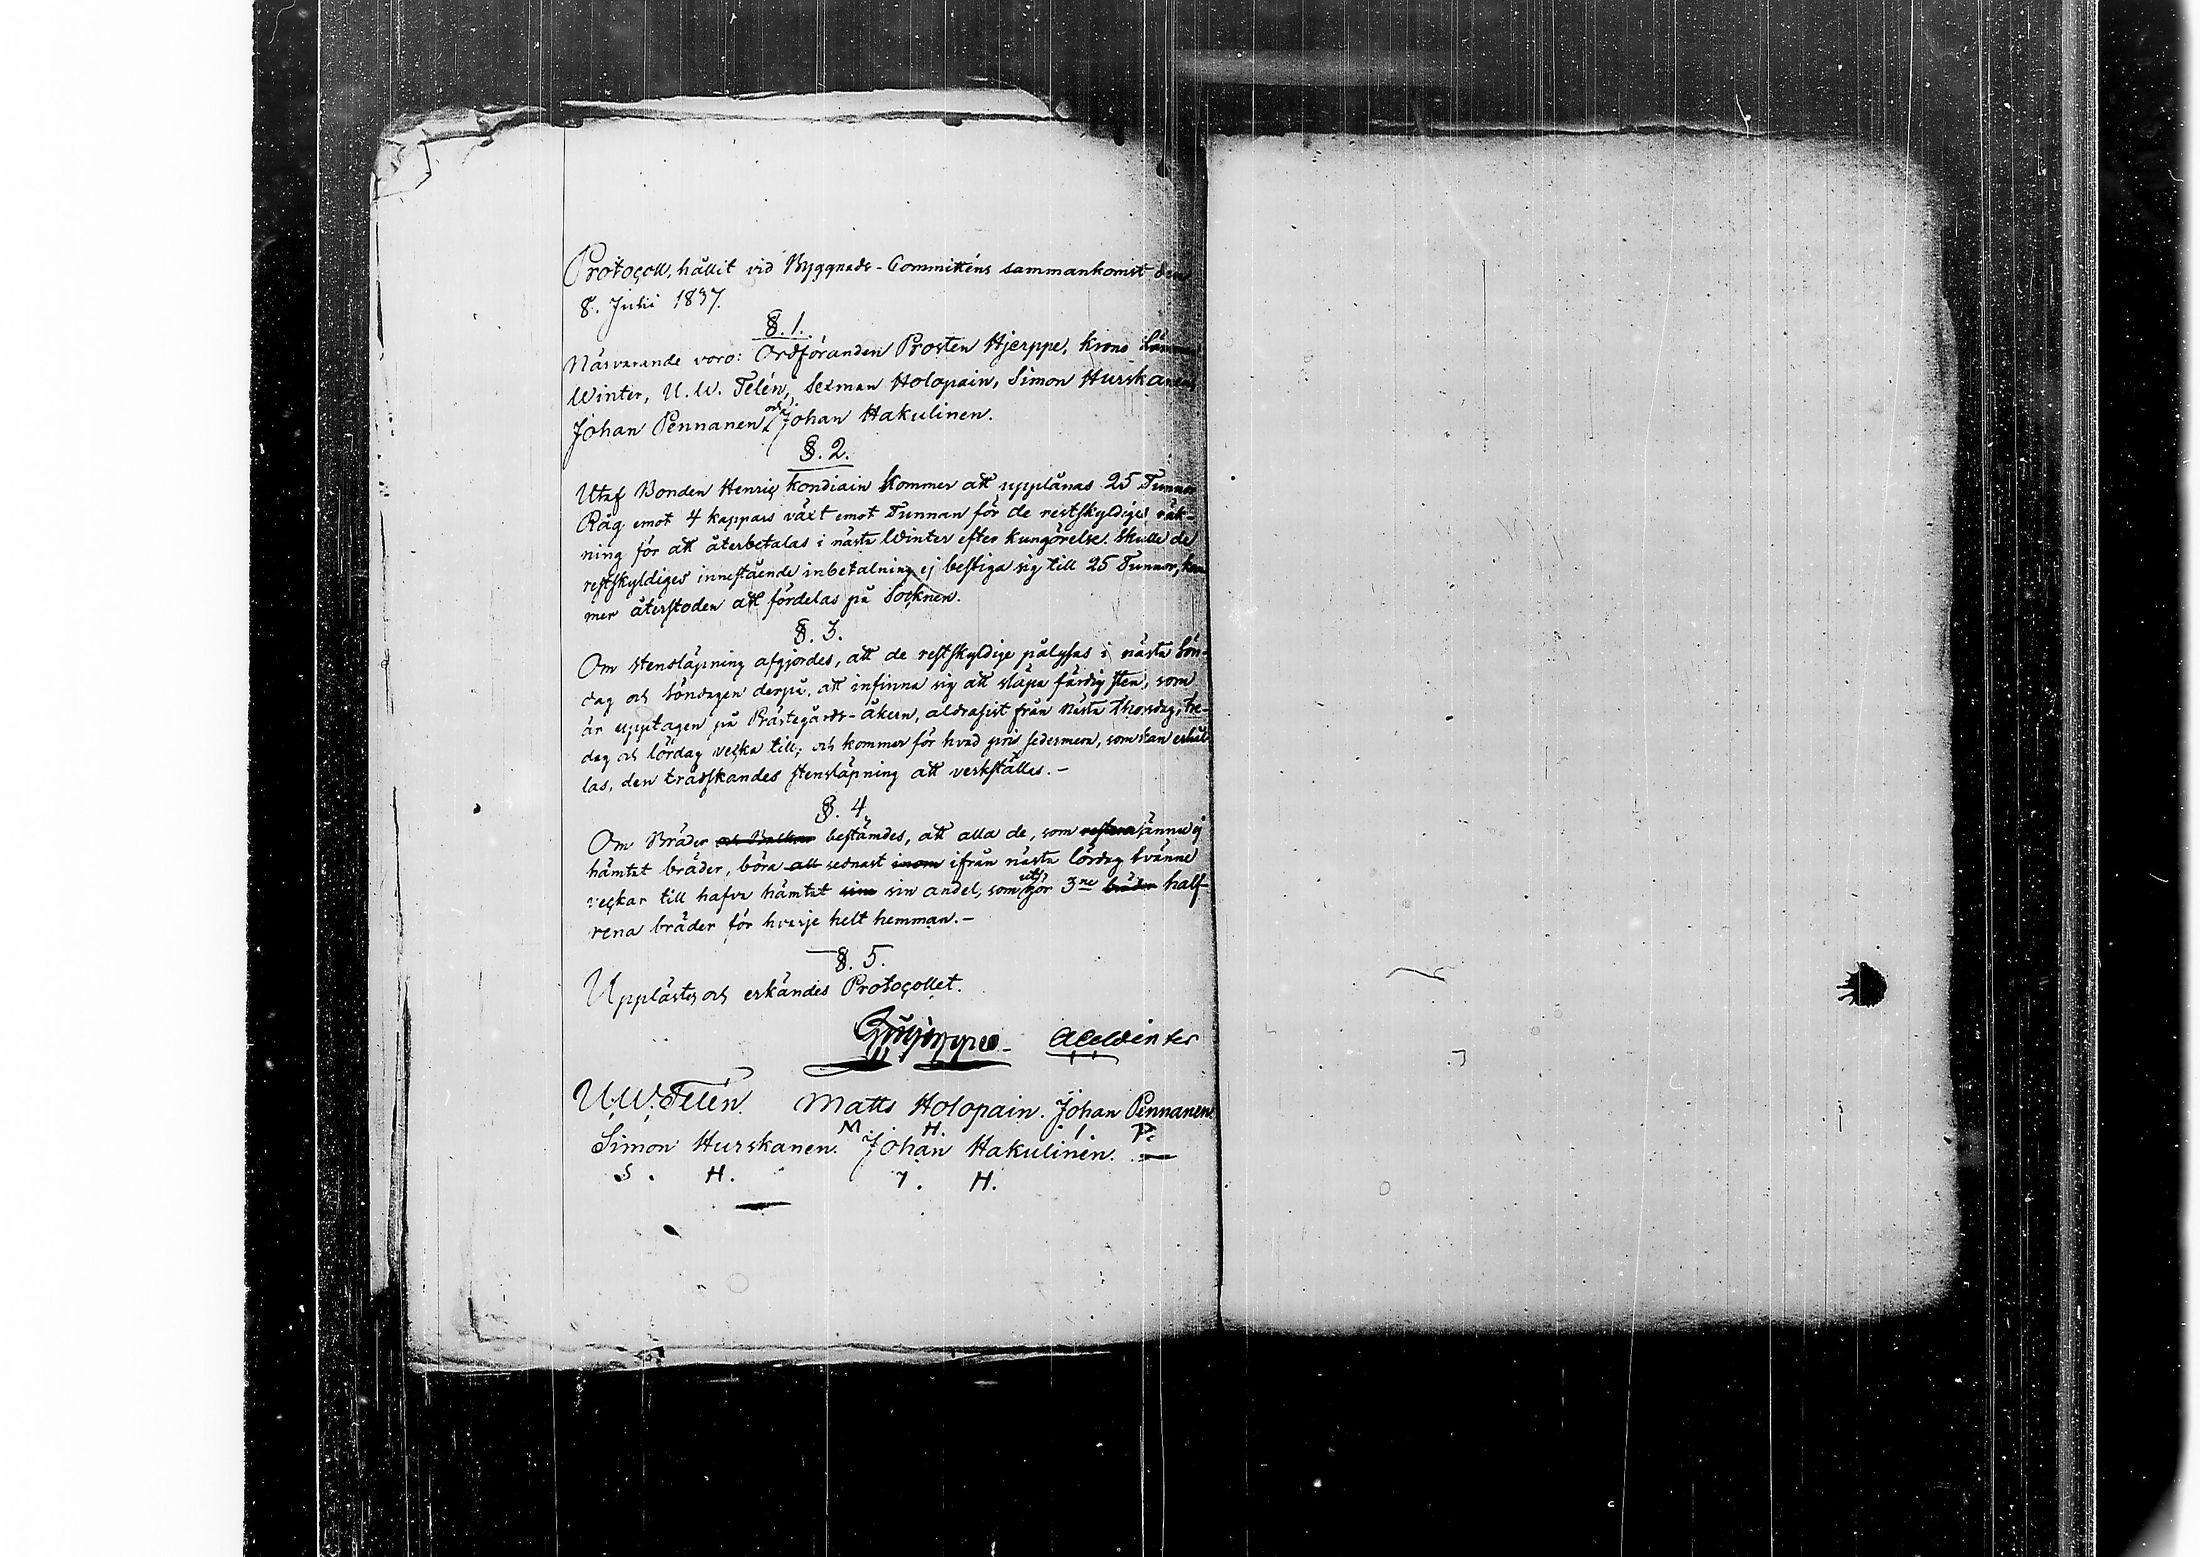 Protocoll, hållit vid Byggnads-Committéns sammankomst den
8. Julii 1837.
§. 1.
Närvarande voro: Ordföranden Prosten Hjerppe, krono
Winter, U. W. Telén, Sexman Holopain, Simon Hurskanen,
Johan Pennanen och Johan Hakulinen.
§. 2.
Utaf Bonden Henric Kondiain kommer att upplånas 25 Tunnor
Råg emot 4 kappars växt emot Tunnan för de restskyldiges räk-
ning för att återbetalas i nästa Winter efter kungörelse. Skulle de
restskyldiges innestående inbetalning ej bestiga sig till 25 Tunnor, kom
mer återstoden att fördelas på Socknen.
§. 3.
Om stensläpning afgjordes, att de restskyldige pålysas i nästa Sön-
dag och Söndagen derpå, att infinna sig att släpa färdig sten, som
är upptagen på Prästegårds-åkern, aldrasist från nästa Thorsdag, fre-
dag och lördag vecka till; och kommer för hvad pris sedermera, som kan erhål
las, den tredskandes stensläpning att verkställas. -
§. 4.
Om Bräder och Balkar bestämdes, att alla de, som restera ännu ej
hämtat bräder, böra att sednast inom ifrån nästa lördag tvänne
veckar till hafva hämtat sine sin andel, som utgör 3ne bräder half-
rena bräder för hvarje helt hemman. -
§. 5.
Upplästes och erkändes Protocollet.
Hjerppe. Winter
U. W. Telén. Matts Holopain. Johan Pennanen
M. H. I. P.
Simon Hurskanen. Johan Hakulinen.
S. H. I. H.